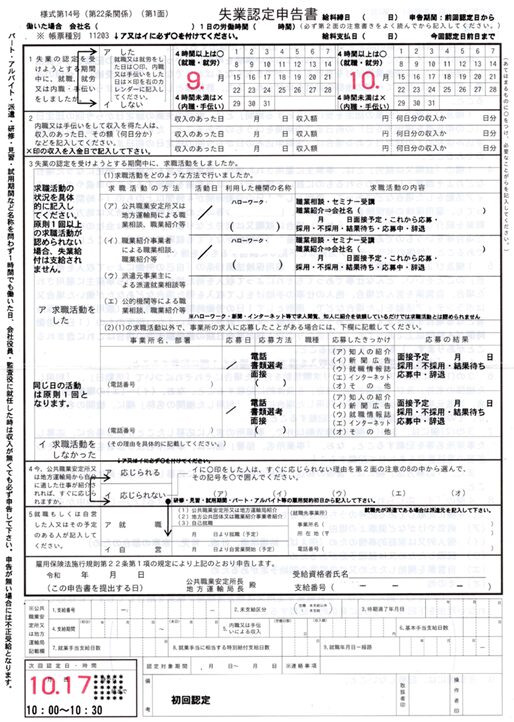 様式第14号（第22条関係）（第1面）
失業認定申告書
給料締日（　　日） 申告期間：前回認定日から
働いた場合 会社名（　　　　） 1日の労働時間（　　時間）（必ず第2面の注意書きをよく読んでから記入してください。）
※ 帳票種別 11203 ↓ア又はイに必ず○を付けてください。
給料支払日（　　日） 今回認定日前日まで
1 失業の認定を受けようとする期間中に、就職、就労又は内職・手伝いをしましたか。
ア した
就職又は就労をした日は○印、内職又は手伝いをした日は×印を右のカレンダーに記入してください。
イ しない
4時間以上は○
（就職・就労）
9月
4時間未満は×
（内職・手伝い）
1 2 3 4 5 6 7
8 9 10 11 12 13 14
15 16 17 18 19 20 21
22 23 24 25 26 27 28
29 30 31
4時間以上は○
（就職・就労）
10月
4時間未満は×
（内職・手伝い）
1 2 3 4 5 6 7
8 9 10 11 12 13 14
15 16 17 18 19 20 21
22 23 24 25 26 27 28
29 30 31
2 内職又は手伝いをして収入を得た人は、収入のあった日、その額（何日分か）などを記入してください。
×印の収入を入金日で記入して下さい。
収入のあった日 月 日 収入額 円 何日分の収入か 日分
収入のあった日 月 日 収入額 円 何日分の収入か 日分
収入のあった日 月 日 収入額 円 何日分の収入か 日分
3 失業の認定を受けようとする期間中に、求職活動をしましたか。
(1)求職活動をどのような方法で行いましたか。
求職活動の状況を具体的に記入してください。
原則1回以上の求職活動が認められない場合、失業給付は支給されません。
ア 求職活動をした
求職活動の方法 活動日 利用した機関の名称
（ア）公共職業安定所又は地方運輸局による職業相談、職業紹介等
ハローワーク・
（　　）
職業相談・セミナー受講
職業紹介⇒会社名（　　）
月 日面接予定・これから応募・
採用・不採用・結果待ち・応募中・辞退
（イ）職業紹介事業者による職業相談、職業紹介等
ハローワーク・
（　　）
職業相談・セミナー受講
職業紹介⇒会社名（　　）
月 日面接予定・これから応募・
採用・不採用・結果待ち・応募中・辞退
（ウ）派遣元事業主による派遣就業相談等
（エ）公的機関等による職業相談、職業紹介等
※ハローワーク・新聞・インターネット等で求人閲覧、知人に紹介を依頼しているだけでは求職活動とは認められません
(2)(1)の求職活動以外で、事業所の求人に応募したことがある場合には、下欄に記載してください。
事業所名、部署 応募日 応募方法 職種 応募したきっかけ 応募の結果
（電話番号　　）
電話
書類選考
面接
（　　）
（ア）知人の紹介
（イ）新聞広告
（ウ）就職情報誌
（エ）インターネット
（オ）その他
面接予定 月 日
採用・不採用・結果待ち
応募中・辞退
同じ日の活動は原則1回となります。
（電話番号　　）
電話
書類選考
面接
（　　）
（ア）知人の紹介
（イ）新聞広告
（ウ）就職情報誌
（エ）インターネット
（オ）その他
面接予定 月 日
採用・不採用・結果待ち
応募中・辞退
イ 求職活動をしなかった
（その理由を具体的に記載してください。）
↓ア又はイに必ず○を付けてください。
4 今、公共職業安定所又は地方運輸局から自分に適した仕事が紹介されれば、すぐに応じられますか。
ア 応じられる
イ 応じられない
イに○印をした人は、すぐに応じられない理由を第2面の注意の8の中から選んで、その記号を○で囲んでください。
（ア） （イ） （ウ） （エ） （オ）
研修・見習・試用期間・パート・アルバイト等の雇用契約初日から記入して下さい。
就職先が派遣である場合は派遣元を記入して下さい。
5 就職もしくは自営した人又はその予定のある人が記入してください。
ア 就職
(1)公共職業安定所又は地方運輸局紹介
(2)地方公共団体又は職業紹介事業者紹介
(3)自己就職
月 日より就職（予定）
イ 自営
月 日より自営業開始（予定）
（就職先事業所）
事業所名（　　）
所在地（〒　　）
電話番号（　　）
雇用保険法施行規則第22条第1項の規定により上記のとおり申告します。
令和 年 月 日
（この申告書を提出する日）
公共職業安定所長
地方運輸局長 殿
受給資格者氏名
支給番号（　－　－　－　）
1.支給番号
2.未支給区分
3.待期満了年月日
4.支給期間
5.内職又は手伝いによる収入
6.基本手当支給日数
7.就業手当支給日数
9.就業年月日－経路
次回認定日・時間
10.17
10：00～10：30
認定対象期間 月 日～ 月 日 ※連絡事項
備考
初回認定
取扱者印
操作者印
パート・アルバイト・派遣・研修・見習・試用期間など名称を問わず1時間でも働いた日、会社役員・監査役に就任した時は収入が無くても必ず申告して下さい。申告が無い場合には不正受給となります。